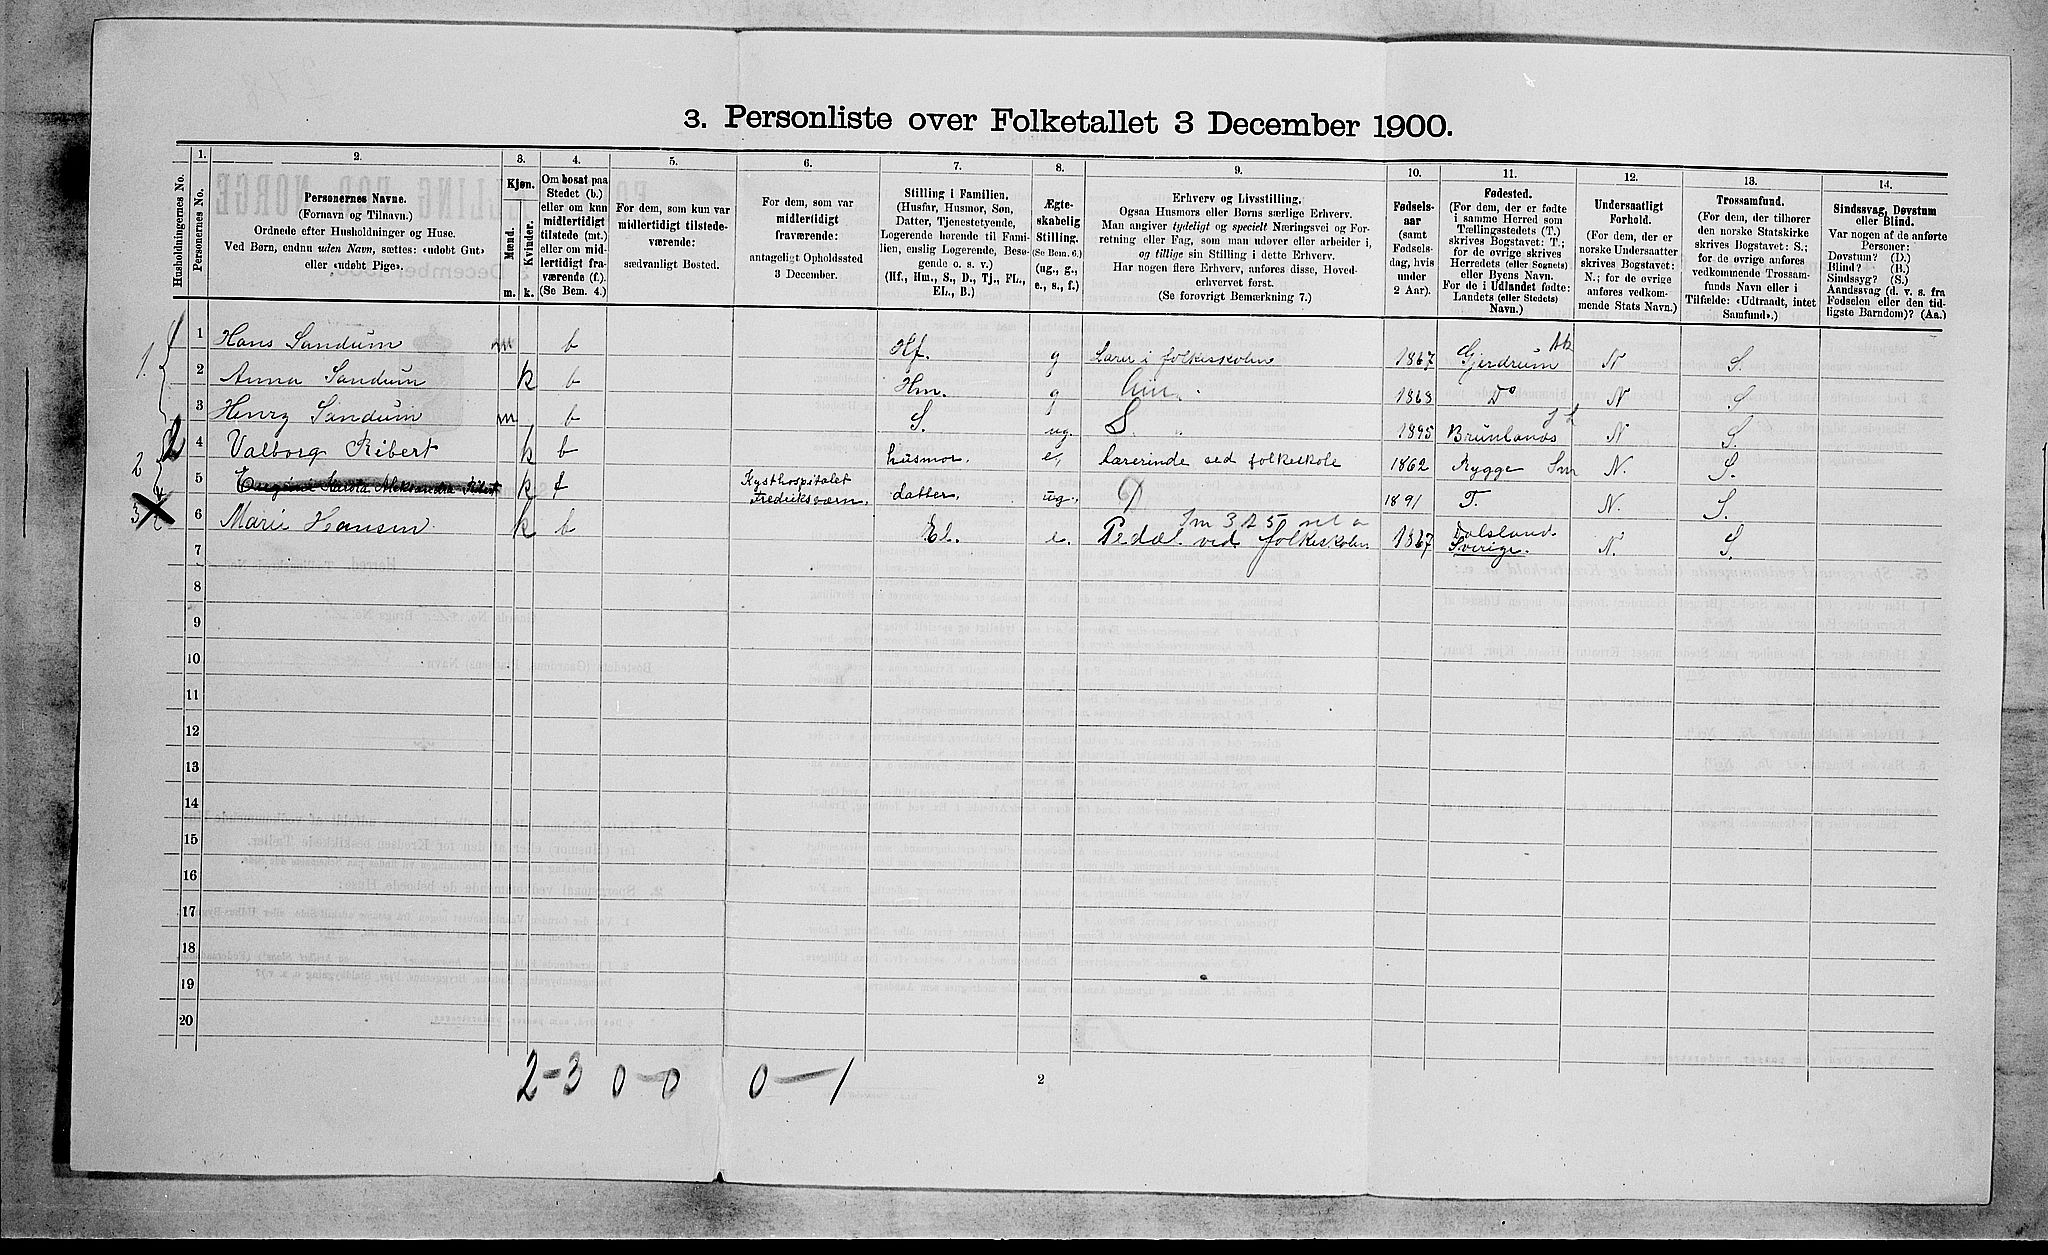 3. Personliste over Folketallet 3 December 1900.
Husholdningernes No.
1.
Personernes No.
2.
Personernes Navne.
(Fornavn og Tilnavn.)
Ordnede efter Husholdninger og Huse.
Ved Børn, endnu uden Navn, sættes: «udøbt Gut»
eller «udøbt Pige».
3.
Kjøn.
Mænd.
Kvinder.
m.
k.
4.
Om bosat paa
Stedet (b.)
eller om kun
midlertidigt
tilstede (mt.)
eller om mid-
lertidigt fra-
værende (f.)
(Se Bem. 4.)
5.
For dem, som kun var
midlertidigt tilstede-
værende:
sædvanligt Bosted.
6.
For dem, som var
midlertidigt
fraværende:
antageligt Opholdssted
3 December.
7.
Stilling i Familien.
(Husfar, Husmor, Søn,
Datter, Tjenestetyende,
Logerende hørende til Fami-
lien, enslig Logerende, Besø-
gende o. s. v.)
(Hf., Hm., S., D., Tj., FL.,
EL., B.)
8.
Ægte-
skabelig
Stilling.
(Se Bem. 6.)
(ug., g.,
e., s., f.)
9.
Erhverv og Livsstilling.
Ogsaa Husmors eller Børns særlige Erhverv.
Man angiver tydeligt og specielt Næringsvei og For-
retning eller Fag, som man udøver eller arbeider i,
og tillige sin Stilling i dette Erhverv.
Har nogen flere Erhverv, anføres disse, Hoved-
erhvervet først.
(Se forøvrigt Bemærkning 7.)
10.
Fødsels-
aar
(samt
Fødsels-
dag, hvis
under
2 Aar).
11.
Fødested.
(For dem, der er fødte
i samme Herred som
Tællingsstedets (T.)
skrives Bogstavet: T.;
for de øvrige skrives
Herredets (eller Sognets)
eller Byens Navn.
For de i Udlandet fødte:
Landets (eller Stedets)
Navn.)
12.
Undersaatligt
Forhold.
(For de, der er
norske Undersaatter
skrives Bogstavet:
N.; for de øvrige
anføres vedkom-
mende Stats Navn.)
13.
Trossamfund.
(For dem, der tilhører
den norske Statskirke
skrives Bogstavet: S.;
for de øvrige anføres
vedkommende Trossam-
funds Navn eller i
Tilfælde: «Udtraadt, intet
Samfund».)
14.
Sindssvag, Døvstum
eller Blind.
Var nogen af de anførte
Personer:
Døvstum? (D.)
Blind? (B.)
Sindssyg? (S.)
Aandssvag (d. v. s. fra
Fødselen eller den tid-
ligste Barndom)? (Aa.)
1. 1 Hans Sandum m b Hf. g Lærer i folkeskolen 1867 Gjerdrum Ak N S.
2 Anna Sandum k b Hm. g Hm. 1863 Do N S
3 Henry Sandum m b S. ug. S. 1895 Brunlanes JL N S.
2 4 Valborg Ribert k b husmor e, Lærerinde ved folkeskole 1862 Rygge Sm N. S.
5 Alexandra Ribert k f Kysthospitalet
Fredriksværn datter. ug. D 1891 T. N. S.
3 6 Marie Hansen k b El. e. Pedel ved folkeskolen 1867 Dalsland
Sverige. N. S.
7
8
9
10
11
12
13
14
15
16
17
18
19
20
2-3 0-0 0-1
2